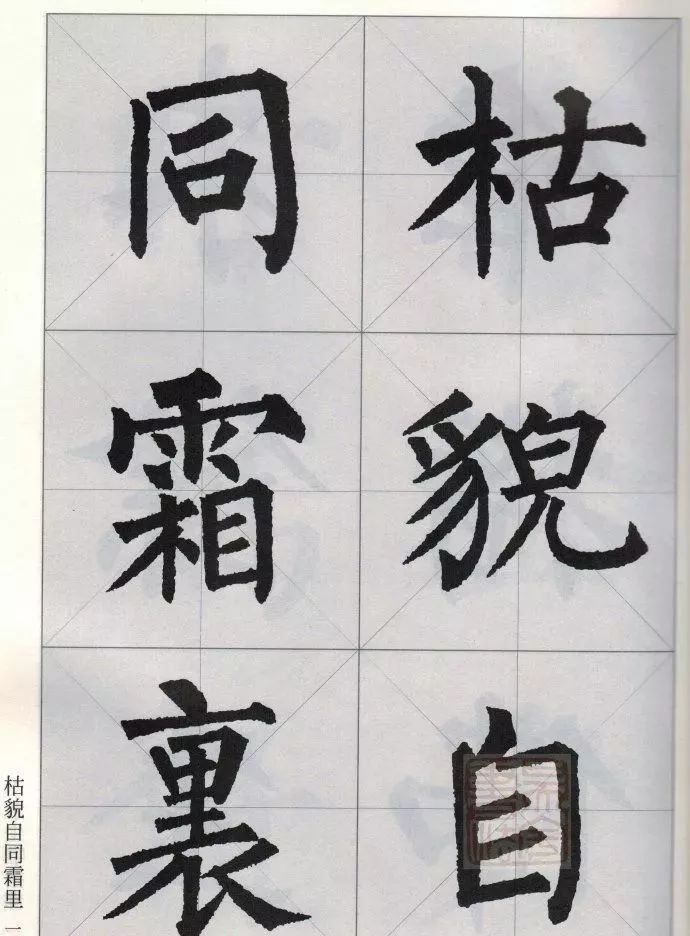 枯貌自
同霜裏
枯貌自同霜里 一